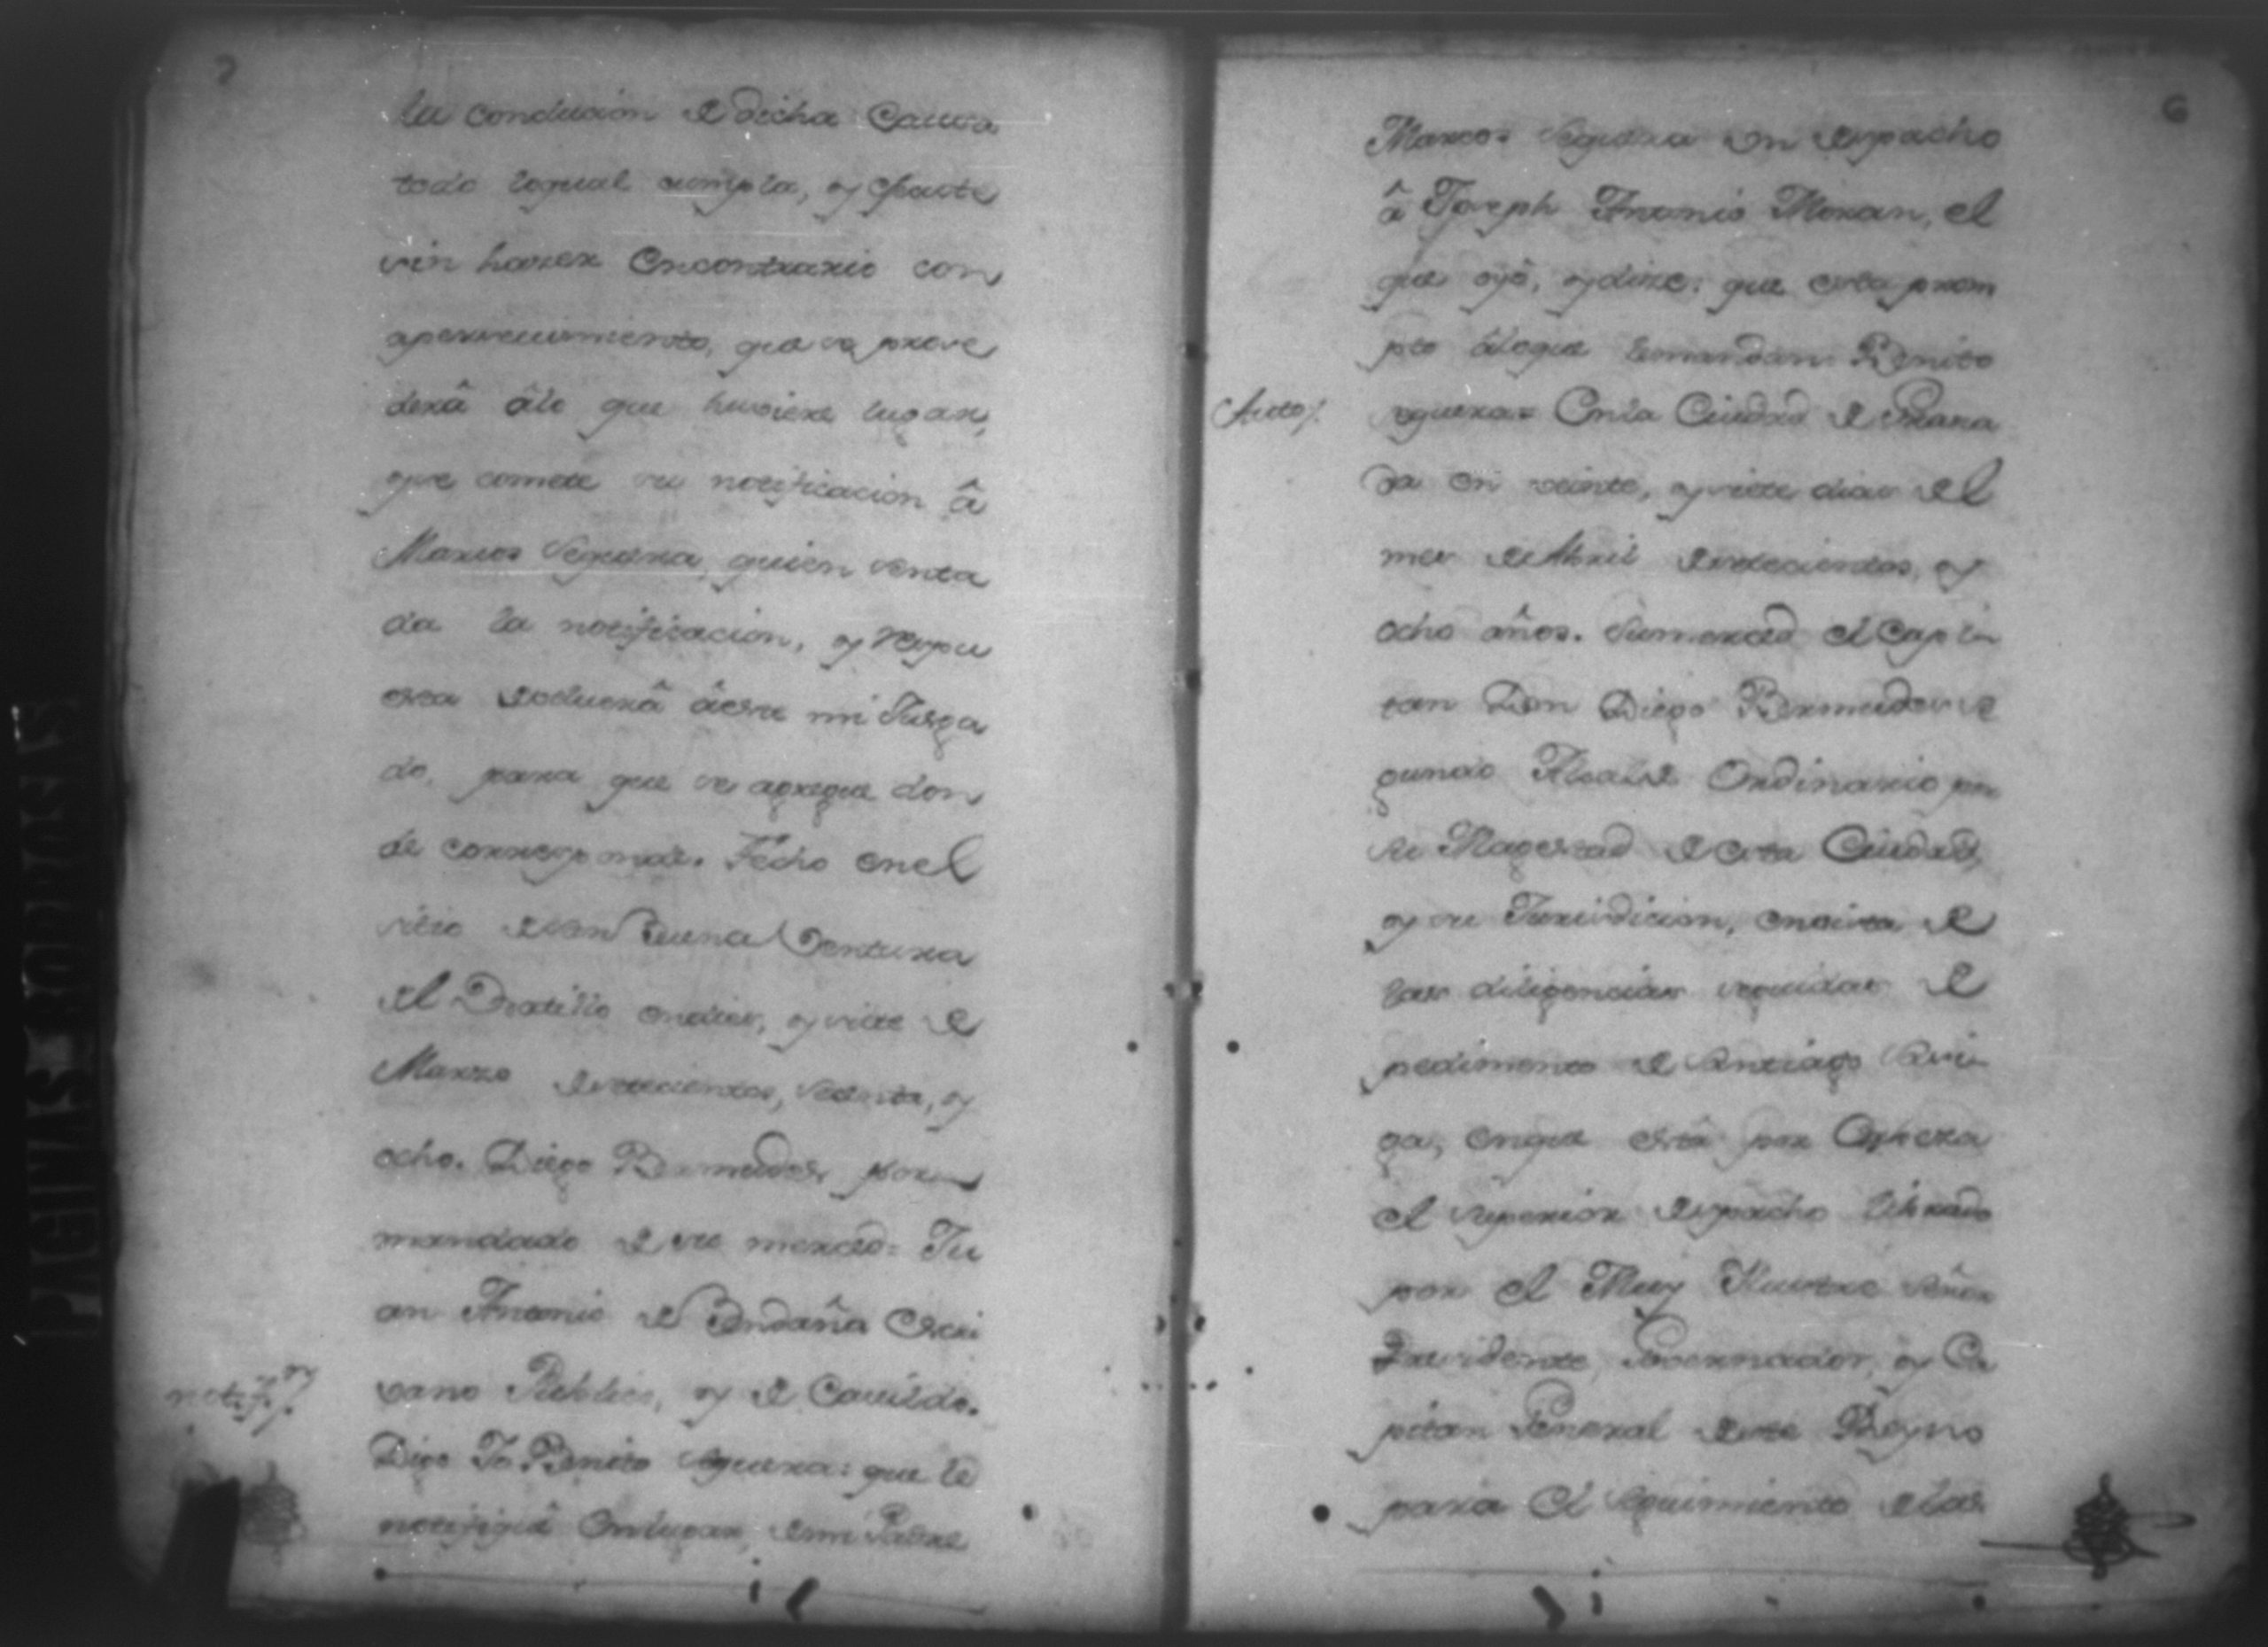 la conducion de dicha Causa
todo loqual cumpla, y execute
sin hacer encontrario con
apersevimiento, que se proce
derâ âlo que huviere lugar,
que comete su notificacion â
Marcos Seguera, quien senta
da la notificacion, y respu
esta devolverâ âeste mi Jusga
do, para que se agregue don
de corresponde. Fecho enel
sitio de San Buena Ventura
del Dratillo endies, y siete de
Marzo desetecientos, setenta, y
ocho. Diego Bermudes por
mandado de su merced= Ju
an Antonio de Bendaña Escri
vano Publico, y de Cavildo.
notif.on/.
Digo Yo Benito Seguera: que le
notifiquê enlugar, demi Padre
6
Marcos Seguera un despacho
â Joseph Antonio Moran, el
que oyô, y dixe: que esta prom
pto âloque lemandan. Benito
Auto/.
Seguera= Enla Ciudad de Grana
da en veinte, y siete dias del
mes de Abril desetecientos, y
ocho años. Sumerced el Capi
tan Don Diego Bermudes se
gundo Alcalde Ordinario por
su Magestad de esta Ciudad,
y su Jurisdicion, envista de
las diligencias seguidas de
pedimento de Santiago
ga, enque estâ por Cabeza
el superior despacho librado
por el Muy Ylustre Señor
Presidente, Governador, y Ca
pitan General deste Reyno
para el seguimiento delas